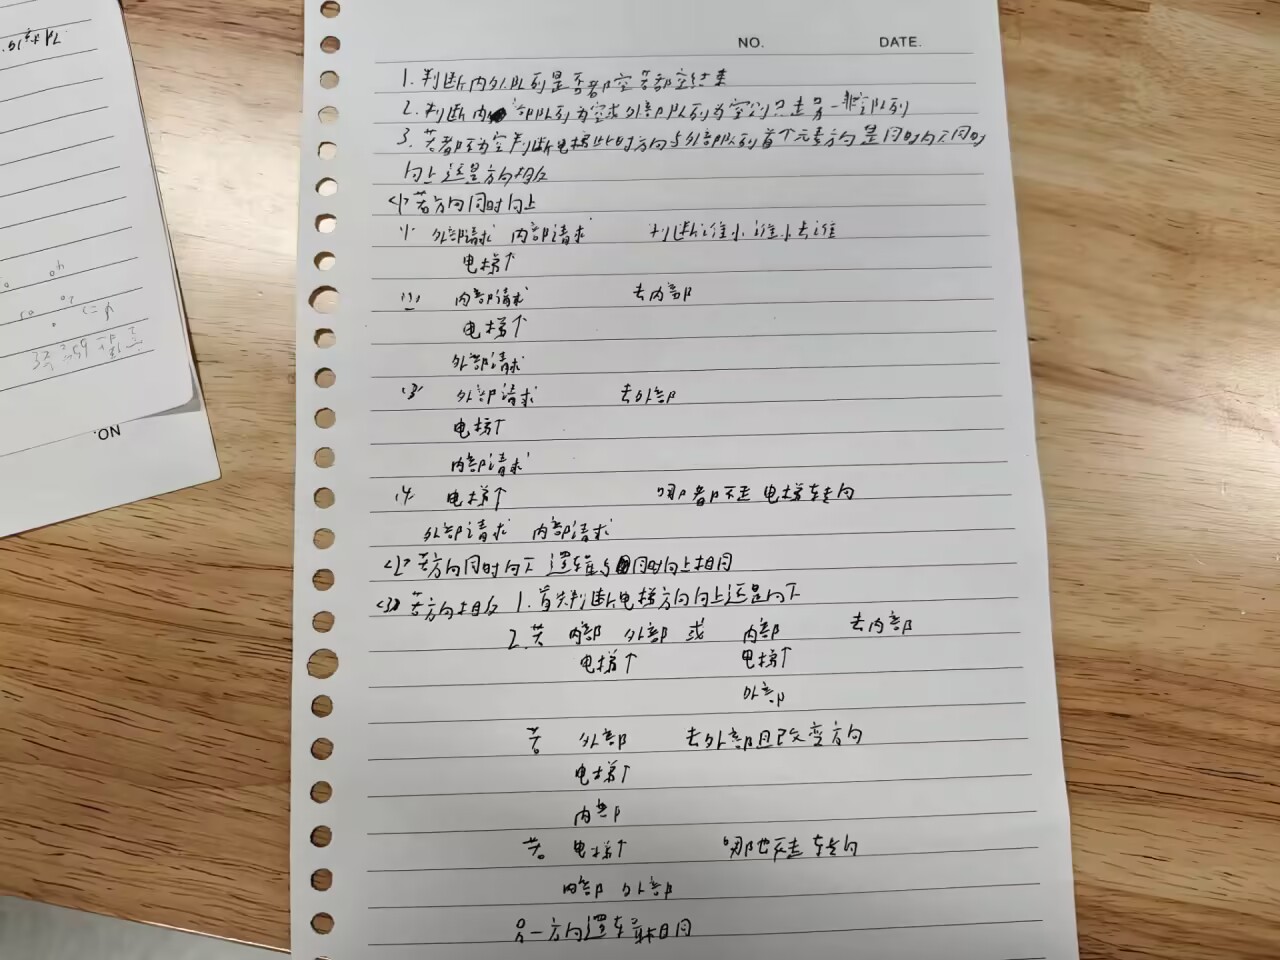 NO. DATE.
1. 判断内外队列是否都空 若都空结束
2. 判断内部队列为空或外部队列为空则只走另一非空队列
3. 若都不为空判断电梯此时方向与外部队列首个元素方向是同时向下同时
向上还是方向相反
<1> 若方向同时向上
(1) 外部请求 内部请求 判断谁小谁小去谁
电梯↑
(2) 内部请求 去内部
电梯↑
外部请求
(3) 外部请求 去外部
电梯↑
内部请求
(4) 电梯↑ 哪都不走 电梯转向
外部请求 内部请求
<2> 若方向同时向下 逻辑与同时向上相同
<3> 若方向相反 1. 首先判断电梯方向向上还是向下
2. 若 内部 外部 或 内部 去内部
电梯↑ 电梯↑
外部
若 外部 去外部且改变方向
电梯↑
内部
若 电梯↑ 哪也不走 转向
内部 外部
另一方向逻辑相同
NO.